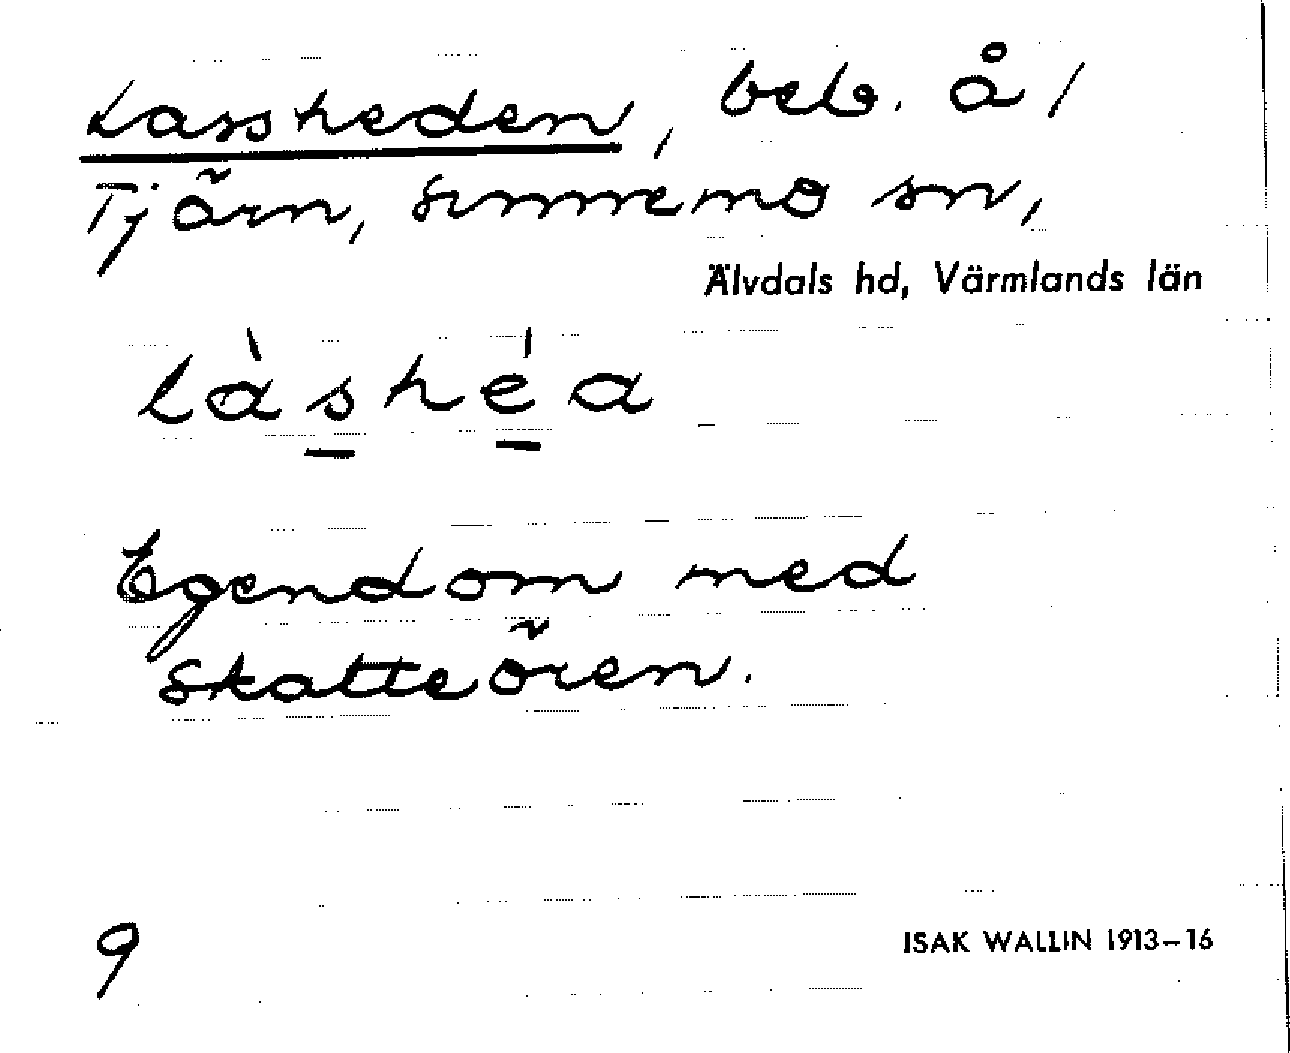 Lassheden, beb. å /
Tjärn, Sunnemo sn,
Älvdals hd, Värmlands län
làshéa
Egendom med
skatteören.
9 ISAK WALLIN 1913–16